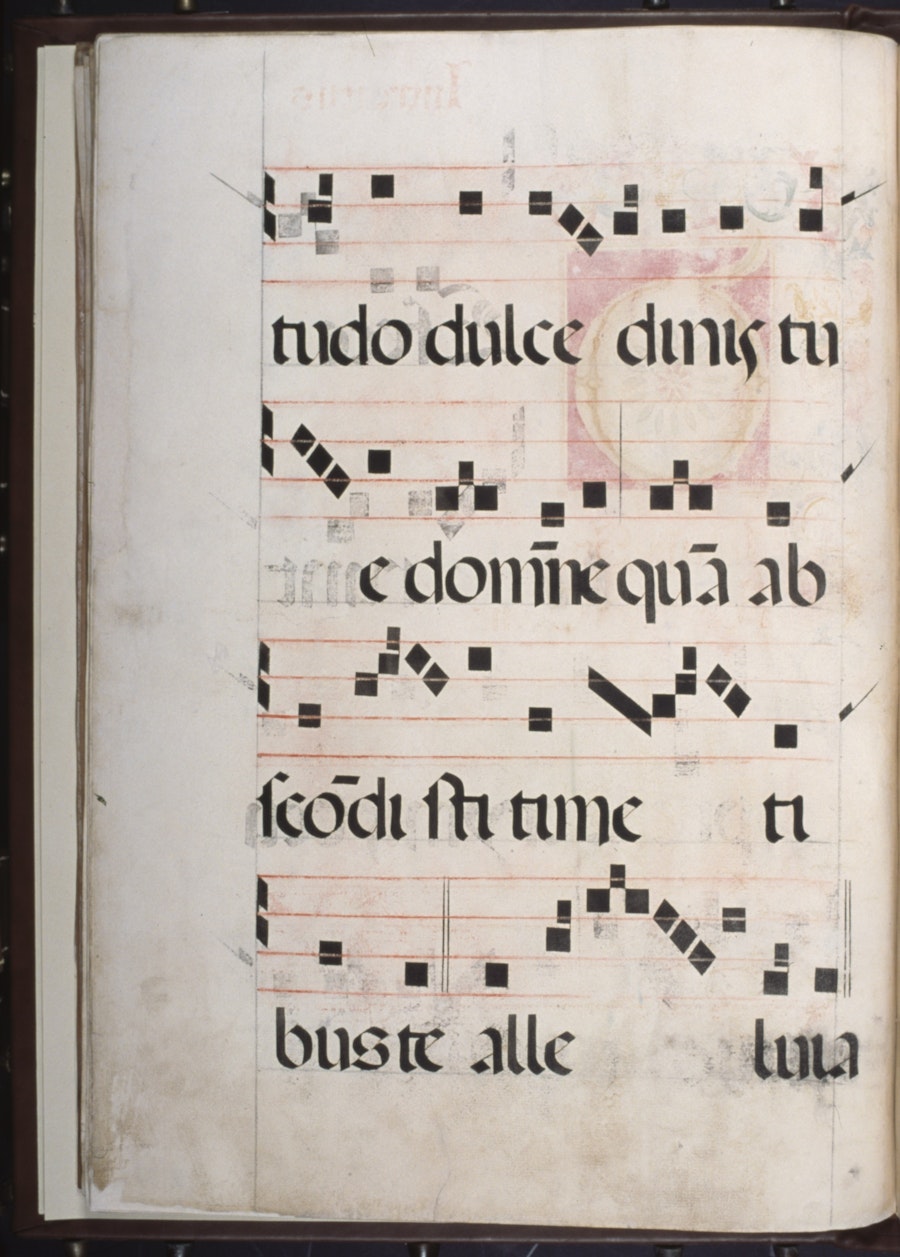 tudo dulce dinis tu
e dom̄ine quā ab
ſcōdi ſti time ti
bus te alle luia